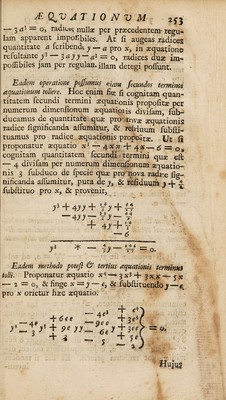 ÆQUATIONUM 253
— 3a² = 0, radices nullæ per præcedentem regu-
lam apparent impossibiles. At si augeas radices
quantitate a scribendo y — a pro x, in æquatione
resultante y³ — 3ayy — a³ = 0, radices duæ im-
possibiles jam per regulam illam detegi possunt.
Eadem operatione possumus etiam secundos terminos
æquationum tollere. Hoc enim fiet si cognitam quan-
titatem secundi termini æquationis propositæ per
numerum dimensionum æquationis divisam, sub-
ducamus de quantitate quæ pro novæ æquationis
radice significanda assumitur, & residuum substi-
tuamus pro radice æquationis propositæ. Ut si
proponatur æquatio x³ — 4xx + 4x — 6 = 0,
cognitam quantitatem secundi termini quæ est
— 4 divisam per numerum dimensionum æquatio-
nis 3 subduco de specie quæ pro nova radice sig-
nificanda assumitur, puta de y, & residuum y + 4/3
substituo pro x, & provenit,
y³ + 4yy + 16/3 y + 64/27
— 4yy — 32/3 y — 64/9
+ 4y + 16/3
— 6
y³ * — 4/3 y — 146/27 = 0.
Eadem methodo potest & tertius æquationis terminus
tolli. Proponatur æquatio x⁴ — 3x³ + 3xx — 5x
— 2 = 0, & finge x = y — e, & substituendo y — e,
pro x orietur hæc æquatio:
+ 6ee — 4e³ + e⁴
y⁴ — 4e y³ + 9e yy — 9ee y + 3e³ = 0.
— 3 + 3 — 6e + 3ee
— 5 + 5e
— 2
Hujus